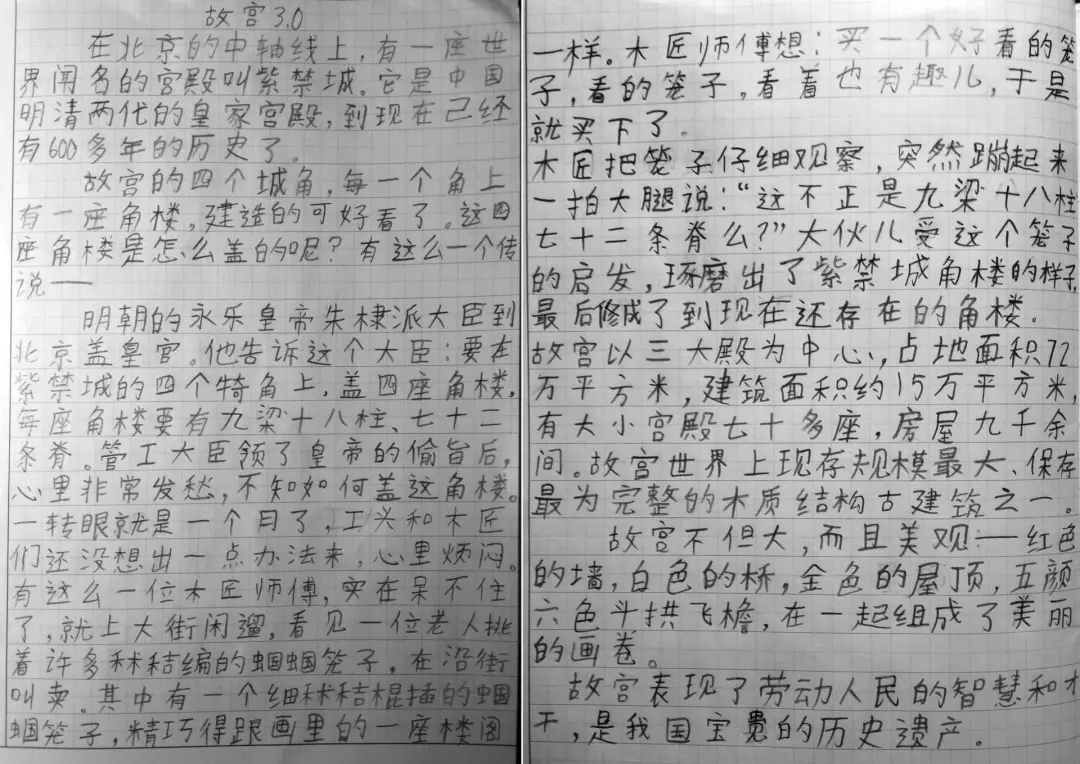 故宫3.0
在北京的中轴线上，有一座世
界闻名的宫殿叫紫禁城。它是中国
明清两代的皇家宫殿，到现在己经
有600多年的历史了。
故宫的四个城角，每一个角上
有一座角楼，建造的可好看了。这四
座角楼是怎么盖的呢？有这么一个传
说——
明朝的永乐皇帝朱棣派大臣到
北京盖皇宫。他告诉这个大臣：要在
紫禁城的四个犄角上，盖四座角楼，
每座角楼要有九梁十八柱、七十二
条脊。管工大臣领了皇帝的偷旨后，
心里非常发愁，不知如何盖这角楼。
一转眼就是一个月了，工头和木匠
们还没想出一点办法来，心里烦闷。
有这么一位木匠师傅，实在呆不住
了，就上大街闲遛，看见一位老人挑
着许多秫秸编的蝈蝈笼子，在沿街
叫卖。其中有一个细秫秸棍插的蝈
蝈笼子，精巧得跟画里的一座楼阁
一样。木匠师傅想：买一个好看的笼
子，看的笼子，看着也有趣儿，于是
就买下了。
木匠把笼子仔细观察，突然蹦起来
一拍大腿说：“这不正是九梁十八柱
七十二条脊么？”大伙儿受这个笼子
的启发，琢磨出了紫禁城角楼的样子，
最后修成了到现在还存在的角楼。
故宫以三大殿为中心，占地面积72
万平方米，建筑面积约15万平方米，
有大小宫殿七十多座，房屋九千余
间。故宫世界上现存规模最大、保存
最为完整的木质结构古建筑之一。
故宫不但大，而且美观——红色
的墙，白色的桥，金色的屋顶，五颜
六色斗拱飞檐，在一起组成了美丽
的画卷。
故宫表现了劳动人民的智慧和才
干，是我国宝贵的历史遗产。